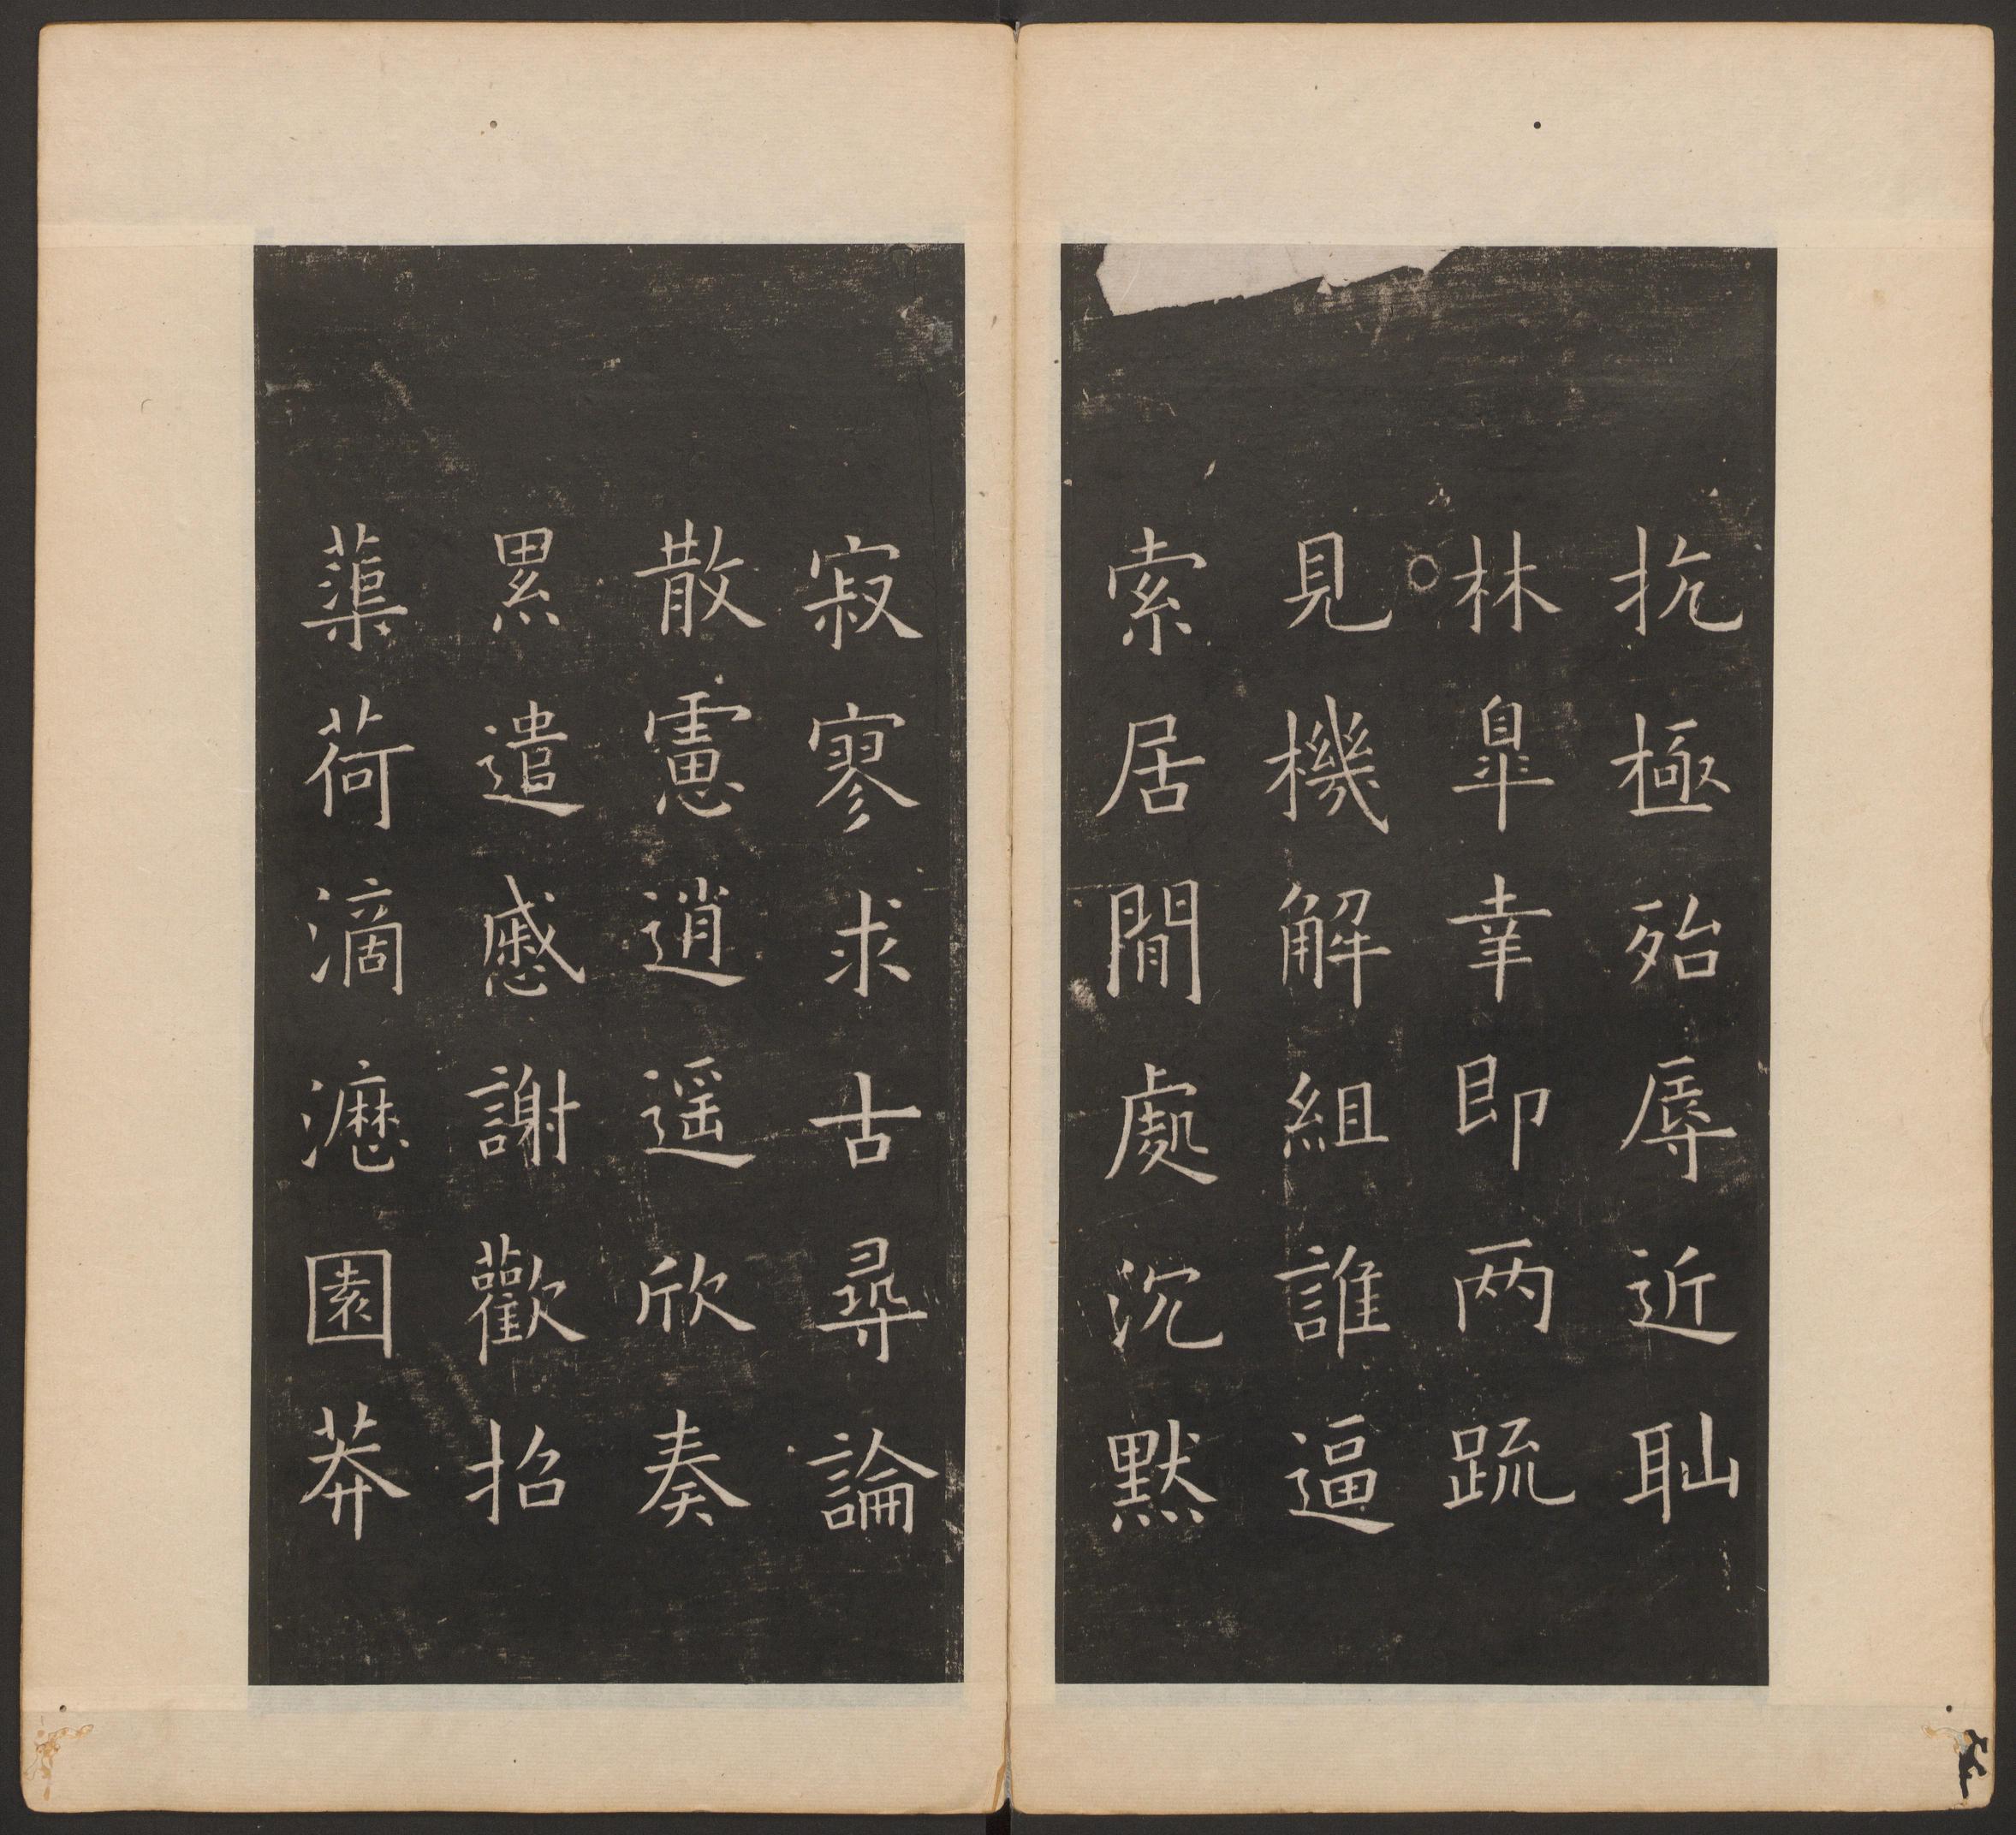 抗極殆辱近耻
林皐幸即两疏
見機解組誰逼
索居閒處沉默
寂寥求古尋論
散慮逍遥欣奏
累遣慼謝歡招
蕖荷滴瀝園莽